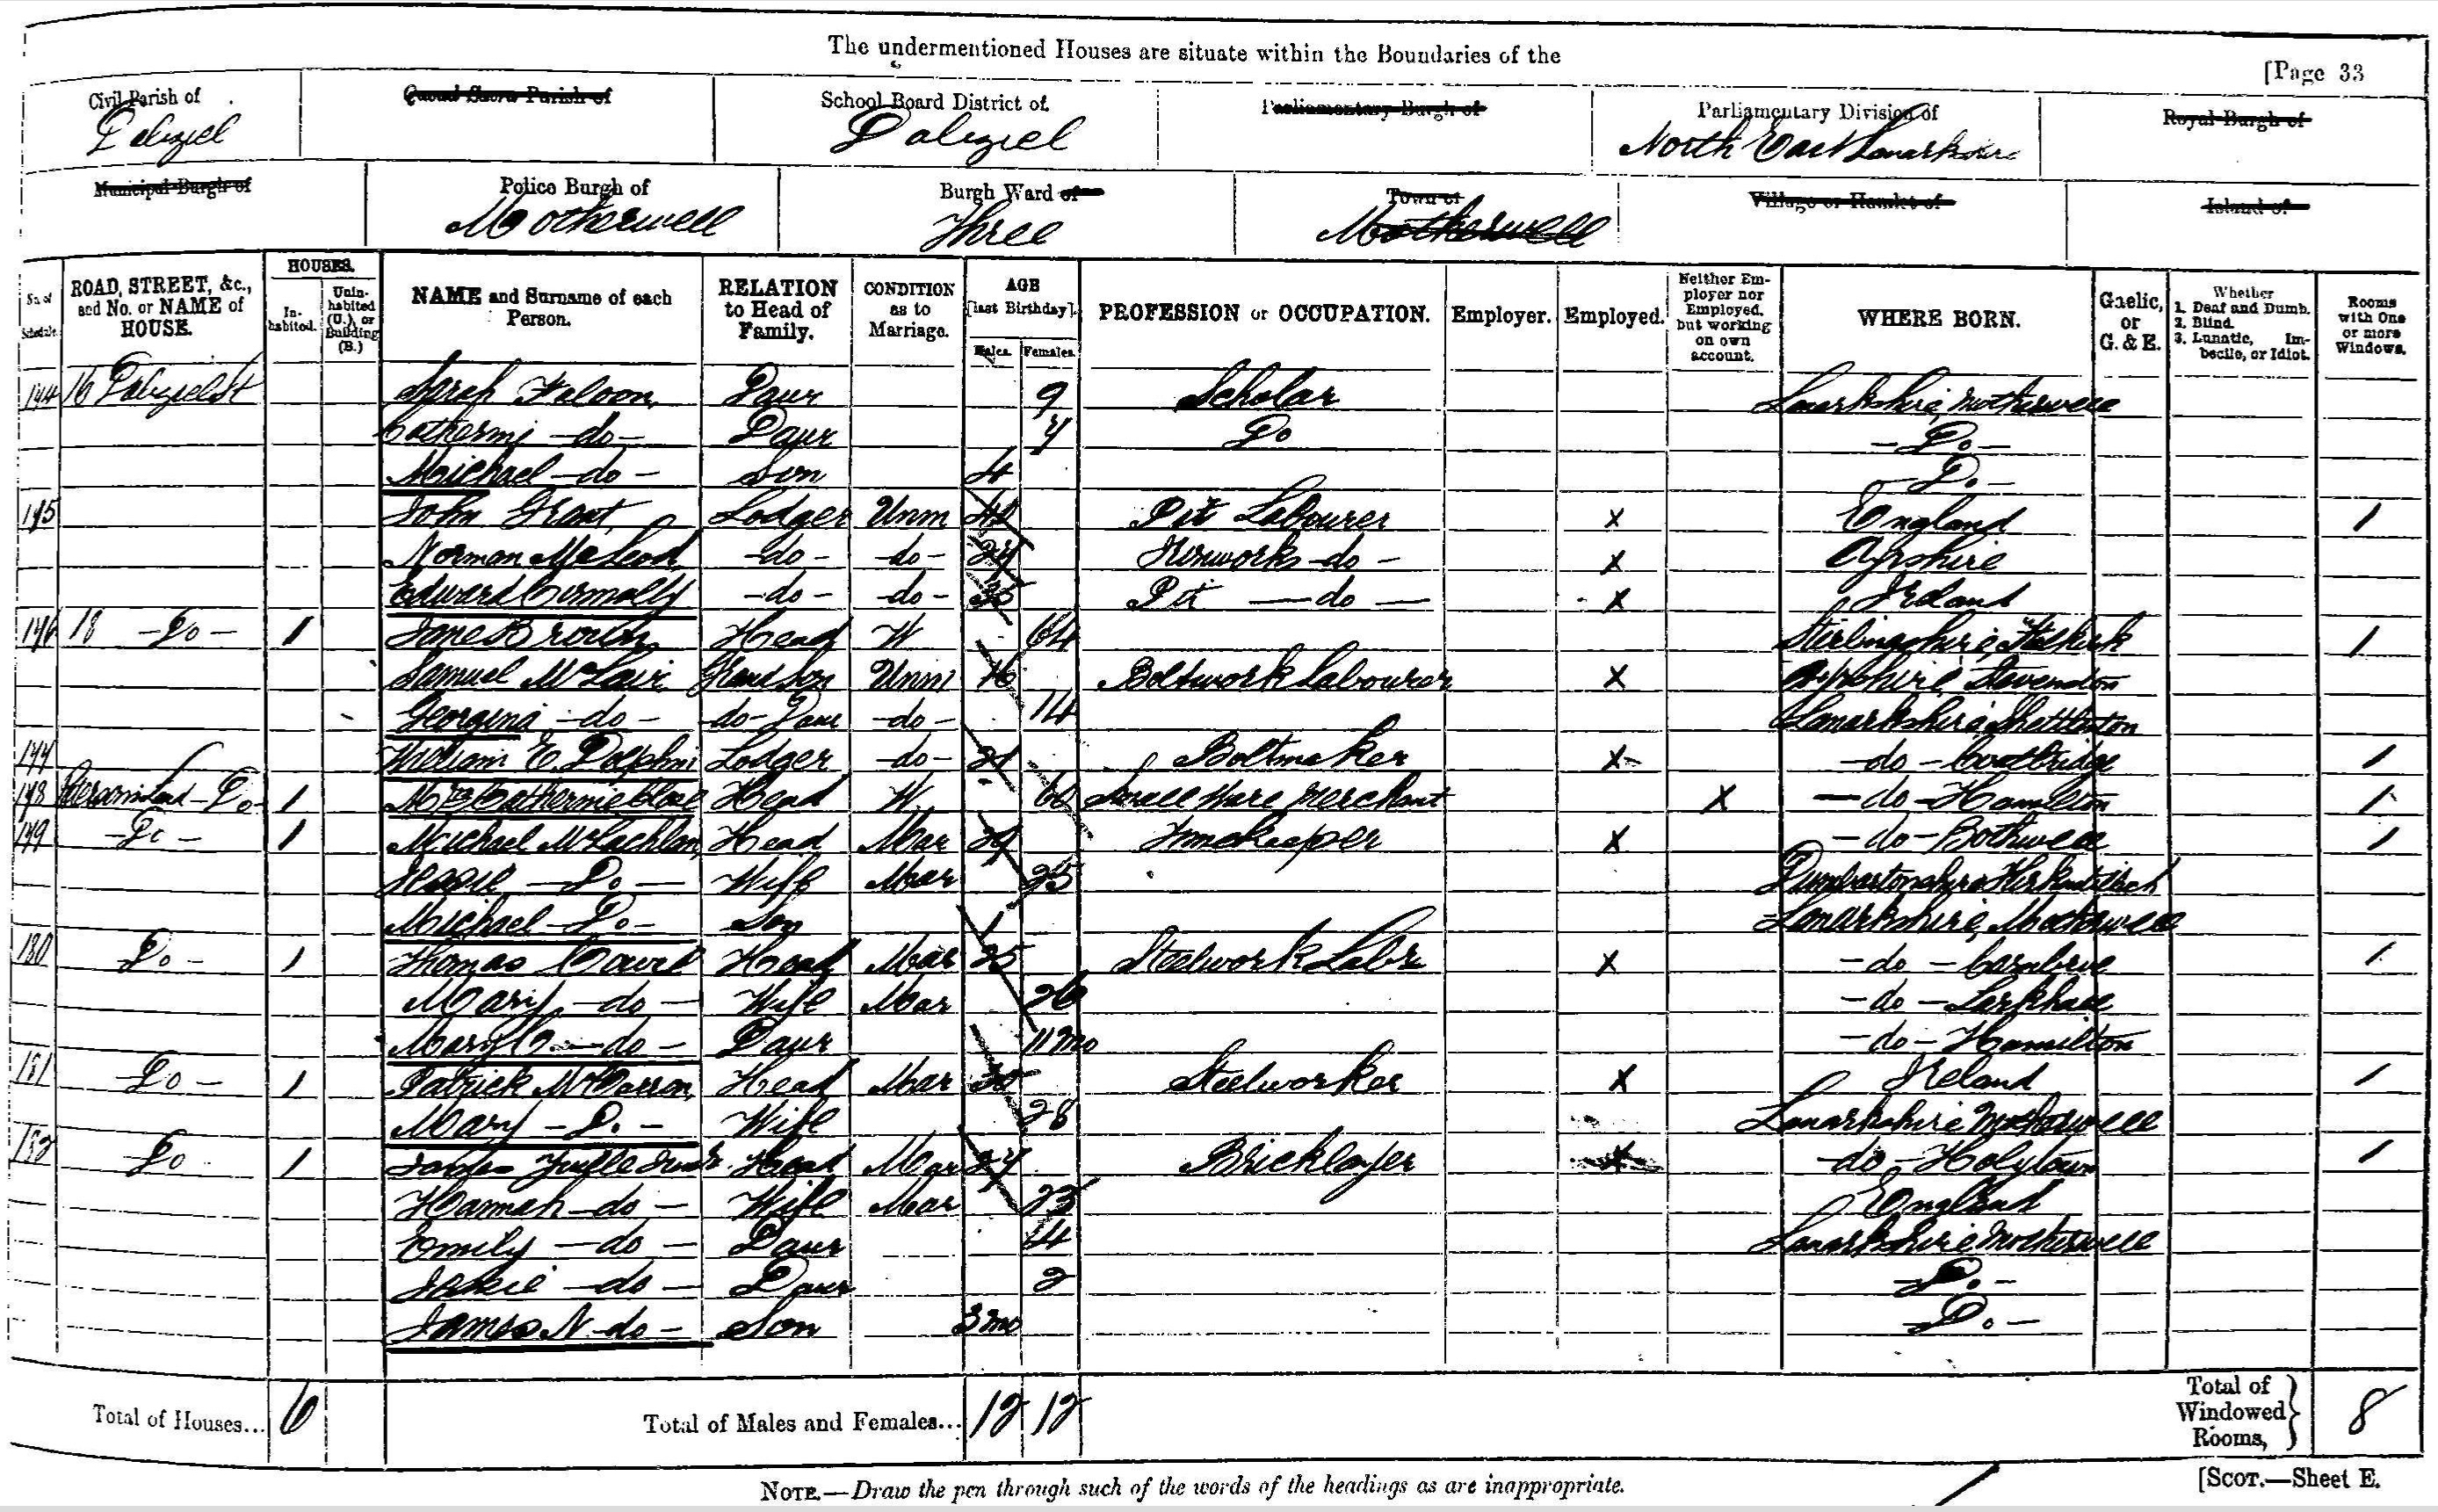 The undermentioned Houses are situate within the Boundaries of the
[Page 33
Civil Parish of Quoad Sacra Parish of School Board District of Parliamentary Burgh of Parliamentary Division of Royal Burgh of
Dalziel Dalziel North East Lanarkshire
Municipal Burgh of Police Burgh of Burgh Ward of Town of Village or Hamlet of Island of
Motherwell Three Motherwell
No. of Schedule. ROAD, STREET, &c., and No. or NAME of HOUSE. HOUSES. Inhabited. Uninhabited (U.), or Building (B.) NAME and Surname of each Person. RELATION to Head of Family. CONDITION as to Marriage. AGE [last Birthday]. Males. Females. PROFESSION or OCCUPATION. Employer. Employed. Neither Employer nor Employed, but working on own account. WHERE BORN. Gaelic, or G. & E. Whether 1. Deaf and Dumb. 2. Blind. 3. Lunatic, Imbecile, or Idiot. Rooms with One or more Windows.
174 16 Dalziel St Sarah Faloon Daur 9 Scholar Lanarkshire, Motherwell
Catherine -do- Daur 7 Do -Do-
Michael -do- Son 4 -Do-
175 John Grant Lodger Unm 42 Pit Labourer x England 1
Norman McLeod -do- -do- 27 Ironworks -do- x Ayrshire
Edward Connolly -do- -do- 35 Pit -do- x Ireland
176 18 -Do- 1 Jane Brown Head W 64 Stirlingshire, Falkirk 1
Samuel McLair Grandson Unm 16 Boltwork Labourer x Ayrshire, Stevenston
Georgina -do- -do- Daur -do- 14 Lanarkshire, Shettleston
177 William E. Dolphin Lodger -do- 21 Boltmaker x -do- Coatbridge 1
178 -Do- 1 Mrs Catherine Close Head W. 60 Small Ware Merchant x -do- Hamilton 1
179 -Do- 1 Michael McLachlan Head Mar 29 Timekeeper x -do- Bothwell 1
Jessie -Do- Wife Mar 25 Dumbartonshire Kirkintilloch
Michael -Do- Son 1 Lanarkshire, Motherwell
180 Do- 1 Thomas Head Mar 25 Steelwork Labr x -do- Carnbroe 1
Mary -do- Wife Mar 26 -do- Larkhall
Mary C. -do- Daur 11 mo -do- Hamilton
181 -Do- 1 Patrick McCarron Head Mar 30 Steelworker x Ireland 1
Mary -Do- Wife 28 Lanarkshire Motherwell
182 Do 1 James Yuille Head Mar 27 Bricklayer x -do- Holytown 1
Hannah -do- Wife Mar 23 England
Emily -do- Daur 4 Lanarkshire Motherwell
-do- Daur 2 -Do-
James N -do- Son 3 mo -Do-
Total of Houses... 6 Total of Males and Females... 12 12 Total of Windowed Rooms, 8
NOTE.—Draw the pen through such of the words of the headings as are inappropriate.
[SCOT.—Sheet E.